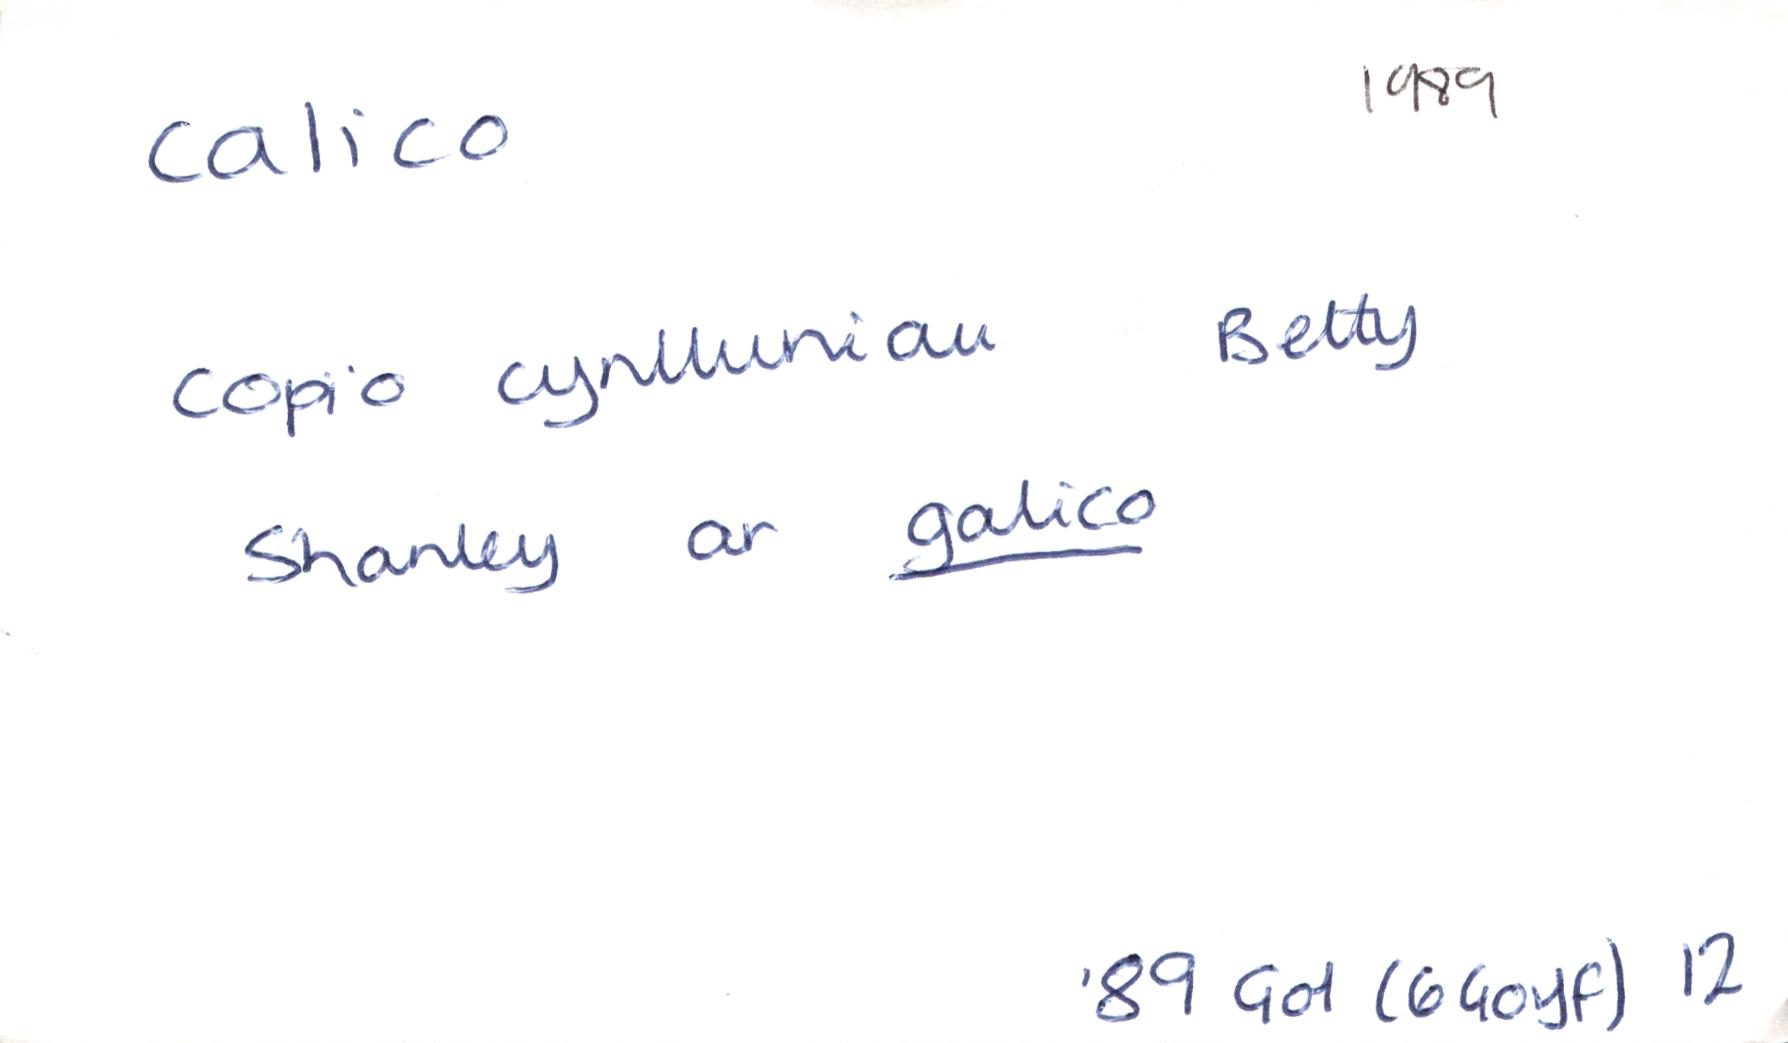 calico
1989
Copio cynlluniau Betty
Shanley ar galico
'89 Gol (6 Goyf) 12